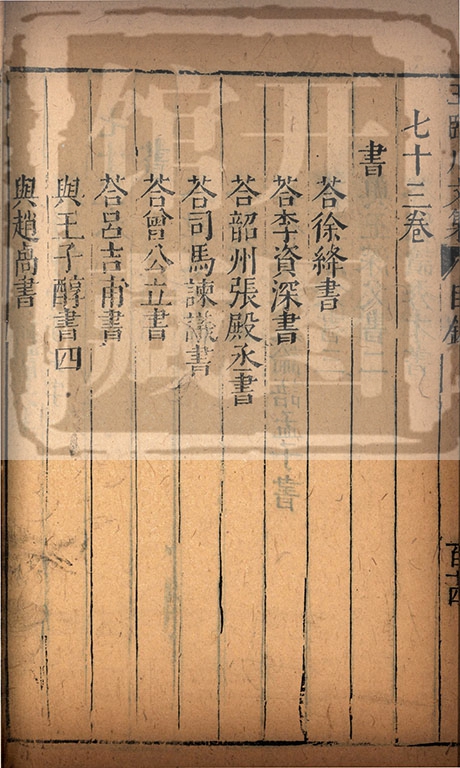 王臨川文集 目錄
七十三卷
書
荅徐絳書
荅李資深書
荅韶州張殿丞書
荅司馬諫議書
荅曾公立書
荅呂吉甫書
與王子醇書四
與趙卨書
百十四